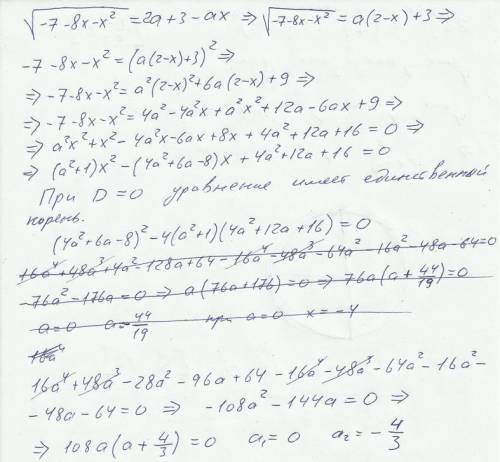 √(-7-8x-x²) = 2a+3-ax ⇒ √(-7-8x-x²) = a(2-x)+3 ⇒
-7-8x-x² = (a(2-x)+3)² ⇒
⇒ -7-8x-x² = a²(2-x)²+6a(2-x)+9 ⇒
⇒ -7-8x-x² = 4a²-4a²x+a²x²+12a-6ax+9 ⇒
⇒ a²x²+x²-4a²x-6ax+8x+4a²+12a+16=0 ⇒
⇒ (a²+1)x²-(4a²+6a-8)x+4a²+12a+16=0
При D=0 уравнение имеет единственный
корень.
(4a²+6a-8)²-4(a²+1)(4a²+12a+16)=0
16a⁴+48a³+4a²-128a+64-16a⁴-48a³-64a²-16a²-48a-64=0
-76a²-176a=0 ⇒ a(76a+176)=0 ⇒ 76a(a+44/19)=0
a=0 a=-44/19 при a=0 x=-4
16a⁴
16a⁴+48a³-28a²-96a+64-16a⁴-48a³-64a²-16a²-
-48a-64=0 ⇒ -108a²-144a=0 ⇒
⇒ 108a(a+4/3)=0 a₁=0 a₂=-4/3